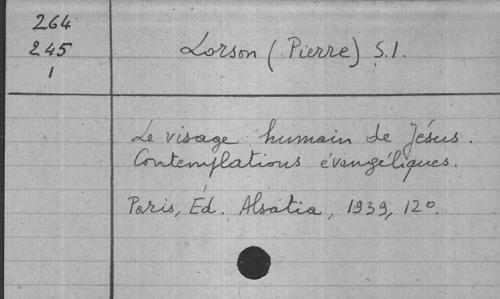 264
245
1
Lorson (Pierre) S.I.
Le visage humain de Jésus.
Contemplations évangéliques.
Paris, Éd. Alsatia, 1939, 12º.